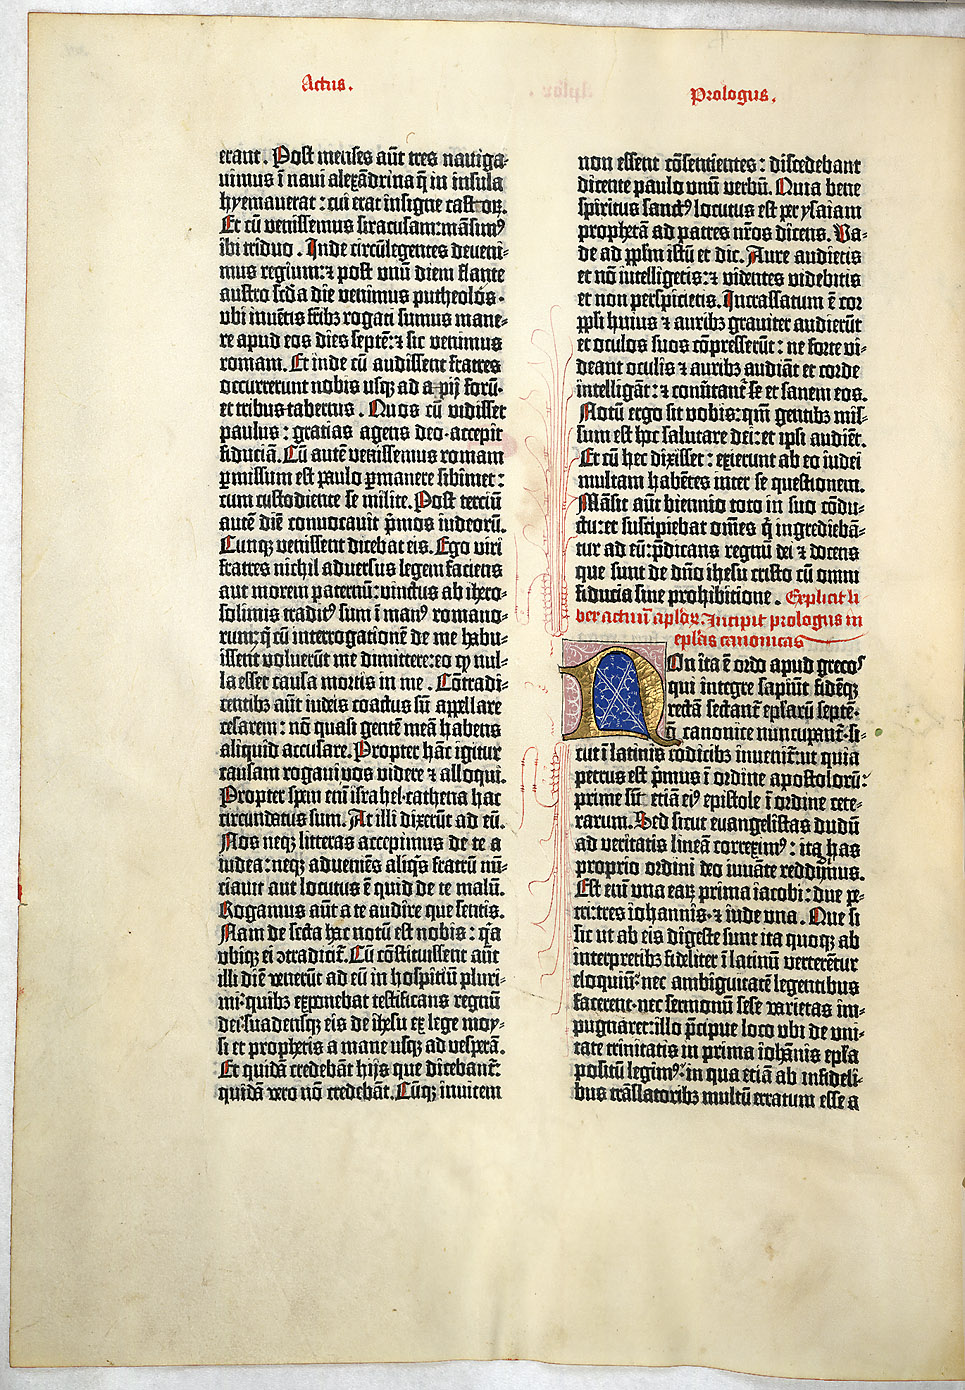 Actus.
Prologus.
erant. Post menses aūt tres nauiga⸗
uimus ī naui alexādrina q̄ in insula
hyemauerat : cui erat insigne castroꝝ.
Et cū venissemus siracusam: māsimꝰ
ibi triduo. Inde circūlegentes deueni⸗
mus regium: ⁊ post unū diem flante
austro scd̄a die venimus putheolos.
vbi inuētis frībꝫ rogati sumus mane⸗
re apud eos dies septē: ⁊ sic venimus
romam. Et inde cū audissent fratres
occurrerunt nobis usqꝫ ad appij forū.
et tribus tabernis. Quos cū vidisset
paulus : gratias agens deo. accepit
fiduciā. Cū autē venissemus romam
ꝑmissum est paulo ꝑmanere sibimet :
cum custodiente se milite. Post terciū
autē diē conuocauit p̄mos iudeorū.
Cunqꝫ venissent dicebat eis. Ego viri
fratres nichil aduersus legem faciens
aut morem paternū: vinctus ab ihero⸗
solimis traditꝰ sum ī manꝰ romano⸗
rum: q̄ cū interrogationē de me habu⸗
issent voluerūt me dimittere: eo ꝙ nul⸗
la esset causa mortis in me. Cōtradi⸗
centibꝫ aūt iudeis coactus sū appellare
cesarem: nō quasi gentē meā habens
aliquid accusare. Propter hāc igitur
causam rogaui vos videre ⁊ alloqui.
Propter spem enī israhel. cathena hac
circundatus sum. At illi dixerūt ad eū.
Nos neqꝫ litteras accepimus de te a
iudea: neqꝫ adueniēs aliqͥs fratrū nū⸗
ciauit aut locutus ē quid de te malū.
Rogamus aūt a te audire que sentis.
Nam de secta hac notū est nobis : qͥa
vbiqꝫ ei ꝯtradicit̄. Cū cōstituissent aūt
illi diē venerūt ad eū in hospitiū pluri⸗
mi: quibꝫ exponebat testificans regnū
dei. suadensqꝫ eis de ihesu ex lege moy⸗
si et prophetis a mane usqꝫ ad vesperā.
Et quidā credebāt hijs que dicebant̄:
quidā vero nō credebāt. Cūqꝫ inuicem
non essent cōsentientes : discedebant
dicente paulo vnū verbū. Quia bene
spiritus sanctꝰ locutus est per ysaiam
prophetā ad patres nr̄os dicens. Va⸗
de ad pp̄lm istū et dic. Aure audietis
et nō intelligetis: ⁊ videntes videbitis
et non perspicietis. Incrassatum ē cor
pp̄li huius ⁊ auribꝫ grauiter audierūt
et oculos suos cōpresserūt : ne forte vi⸗
deant oculis ⁊ auribꝫ audiāt et corde
intelligāt: ⁊ conūtant̄ se et sanem eos.
Notū ergo sit vobis: qm̄ gentibꝫ mis⸗
sum est hoc salutare dei: et ipsi audiēt.
Et cū hec dixisset : exierunt ab eo iudei
multam habētes inter se questionem.
Māsit aūt biennio toto in suo cōdu⸗
ctu: et suscipiebat om̄es q̄ ingrediebā⸗
tur ad eū: p̄dicans regnū dei ⁊ docens
que sunt de dn̄o ihesu cristo cū omni
fiducia sine prohibitione. Explicit li
ber actuū aplōꝝ. Incipit prologus in
ep̄las canonicas
Non ita ē ordo apud grecoˢ
qui integre sapiūt fidēqꝫ
rectā sectant̄ ep̄larū septē.
q̄ canonice nuncupant̄. si⸗
cut ī latinis codicibꝫ inuenit̄: ut quia
petrus est p̄mus ī ordine apostolorū:
prime sīt etiā eiꝰ epistole ī ordine cete⸗
rarum. Sed sicut euangelistas dudū
ad veritatis lineā correximꝰ : ita has
proprio ordini deo iuuāte reddidimus.
Est enī vna eaꝝ prima iacobi: due pe⸗
tri: tres iohannis. ⁊ iude vna. Que si
sic ut ab eis digeste sunt ita quoqꝫ ab
interpretibꝫ fideliter ī latinū verterētur
eloquiū: nec ambiguitatē legentibus
facerent. nec sermonū sese varietas im⸗
pugnaret: illo p̄cipue loco vbi de vni⸗
tate trinitatis in prima iohānis ep̄la
positū legimꝰ. in qua etiā ab infideli⸗
bus trāslatoribꝫ multū erratum esse a